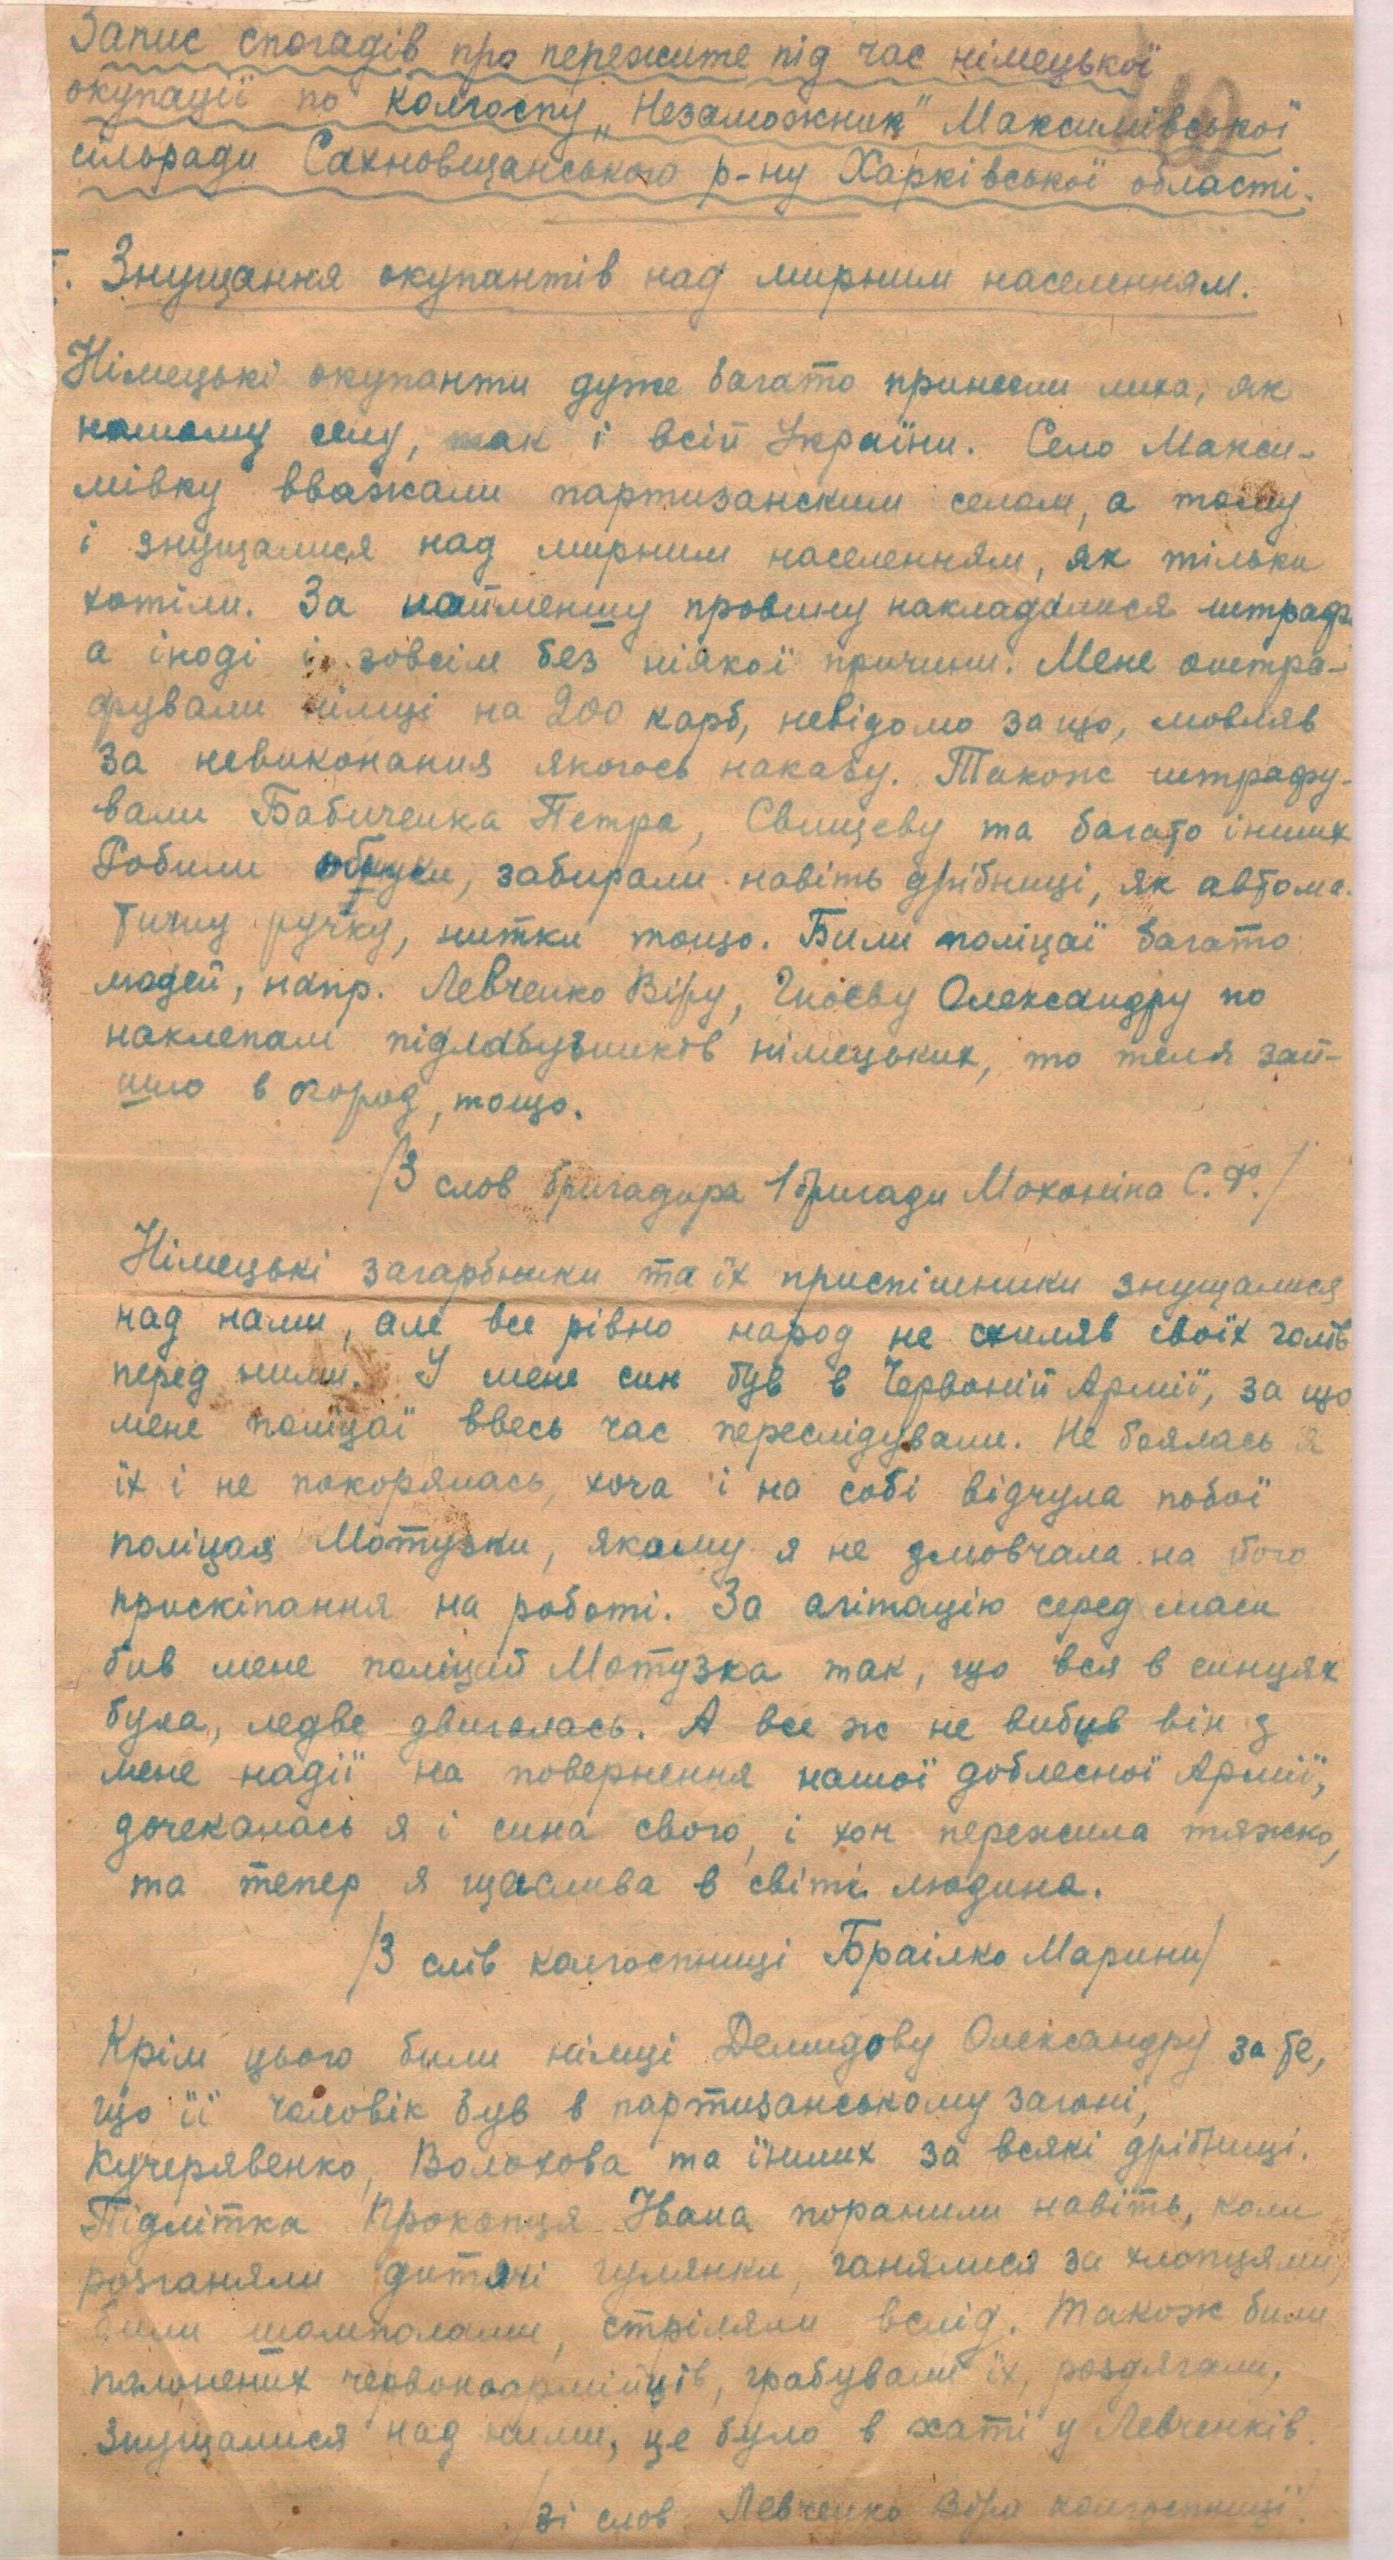 Запис спогадів про пережите під час німецької
окупації по колгоспу „Незаможник" Максимівської
сільради Сахновщанського р-ну Харківської області.
I. Знущання окупантів над мирним населенням.
Німецькі окупанти дуже багато принесли лиха, як
нашому селу, так і всій України. Село Макси-
мівку вважали партизанским селом, а тому
і знущалися над мирним населенням, як тільки
хотіли. За найменшу провину накладалися штраф
а іноді і зовсім без ніякої причини. Мене оштра-
фували німці на 200 карб, невідомо за що, мовляв
за невиконання якогось наказу. Також штрафу-
вали Бабиченка Петра, Свищеву та багато інших
Робили обшуки, забирали навіть дрібниці, як автома-
тичну ручку, нитки тощо. Били поліцаї багато
людей, напр. Левченко Віру, Гноєву Олександру по
наклепам підлабузників німецьких, то теля зай-
шло в огород, тощо.
/З слов бригадира 1 бригади Мохоніна С. Ф./
Німецькі загарбники та їх приспішники знущалися
над нами, але все рівно народ не схиляв своїх голів
перед ними. У мене син був в Червоній Армії, за що
мене поліцаї ввесь час переслідували. Не боялась я
їх і не покорялась, хоча і на собі відчула побої
поліцая Мотузки, якому я не змовчала на його
прискіпання на роботі. За агітацію серед маси
бив мене поліцай Мотузка так, що вся в синцях
була, ледве двигалась. А все ж не вибив він з
мене надії на повернення нашої доблесної Армії,
дочекалась я і сина свого, і хоч пережила тяжко,
та тепер я щаслива в світі людина.
/З слів колгоспниці Браілко Марини/
Крім цього били німці Демидову Олександру за те,
що її чоловік був в партизанському загоні,
Кучерявенко, Волохова та їнших за всякі дрібниці.
Підлітка Прокопця Івана поранили навіть, коли
розганяли дитячі гулянки, ганялися за хлопцями,
били шомполами, стріляли вслід. Також били
пальонених червоноармійців, грабували їх, роздягали,
знущалися над ними, це було в хаті у Левченків.
/зі слов Левченко Віри колгоспниці/